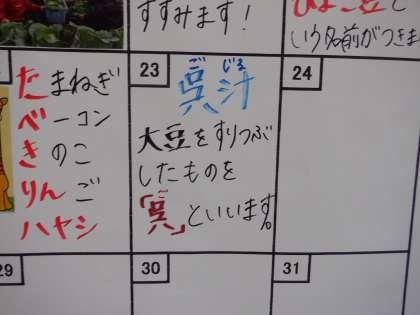 すすみます!
ひよこ豆と
いう名前がつきま
たまねぎ
ベーコン
きのこ
りんご
ハヤシ
23
ごじる
呉汁
大豆をすりつぶ
したものを
ご
「呉」といいます。
24
29
30
31